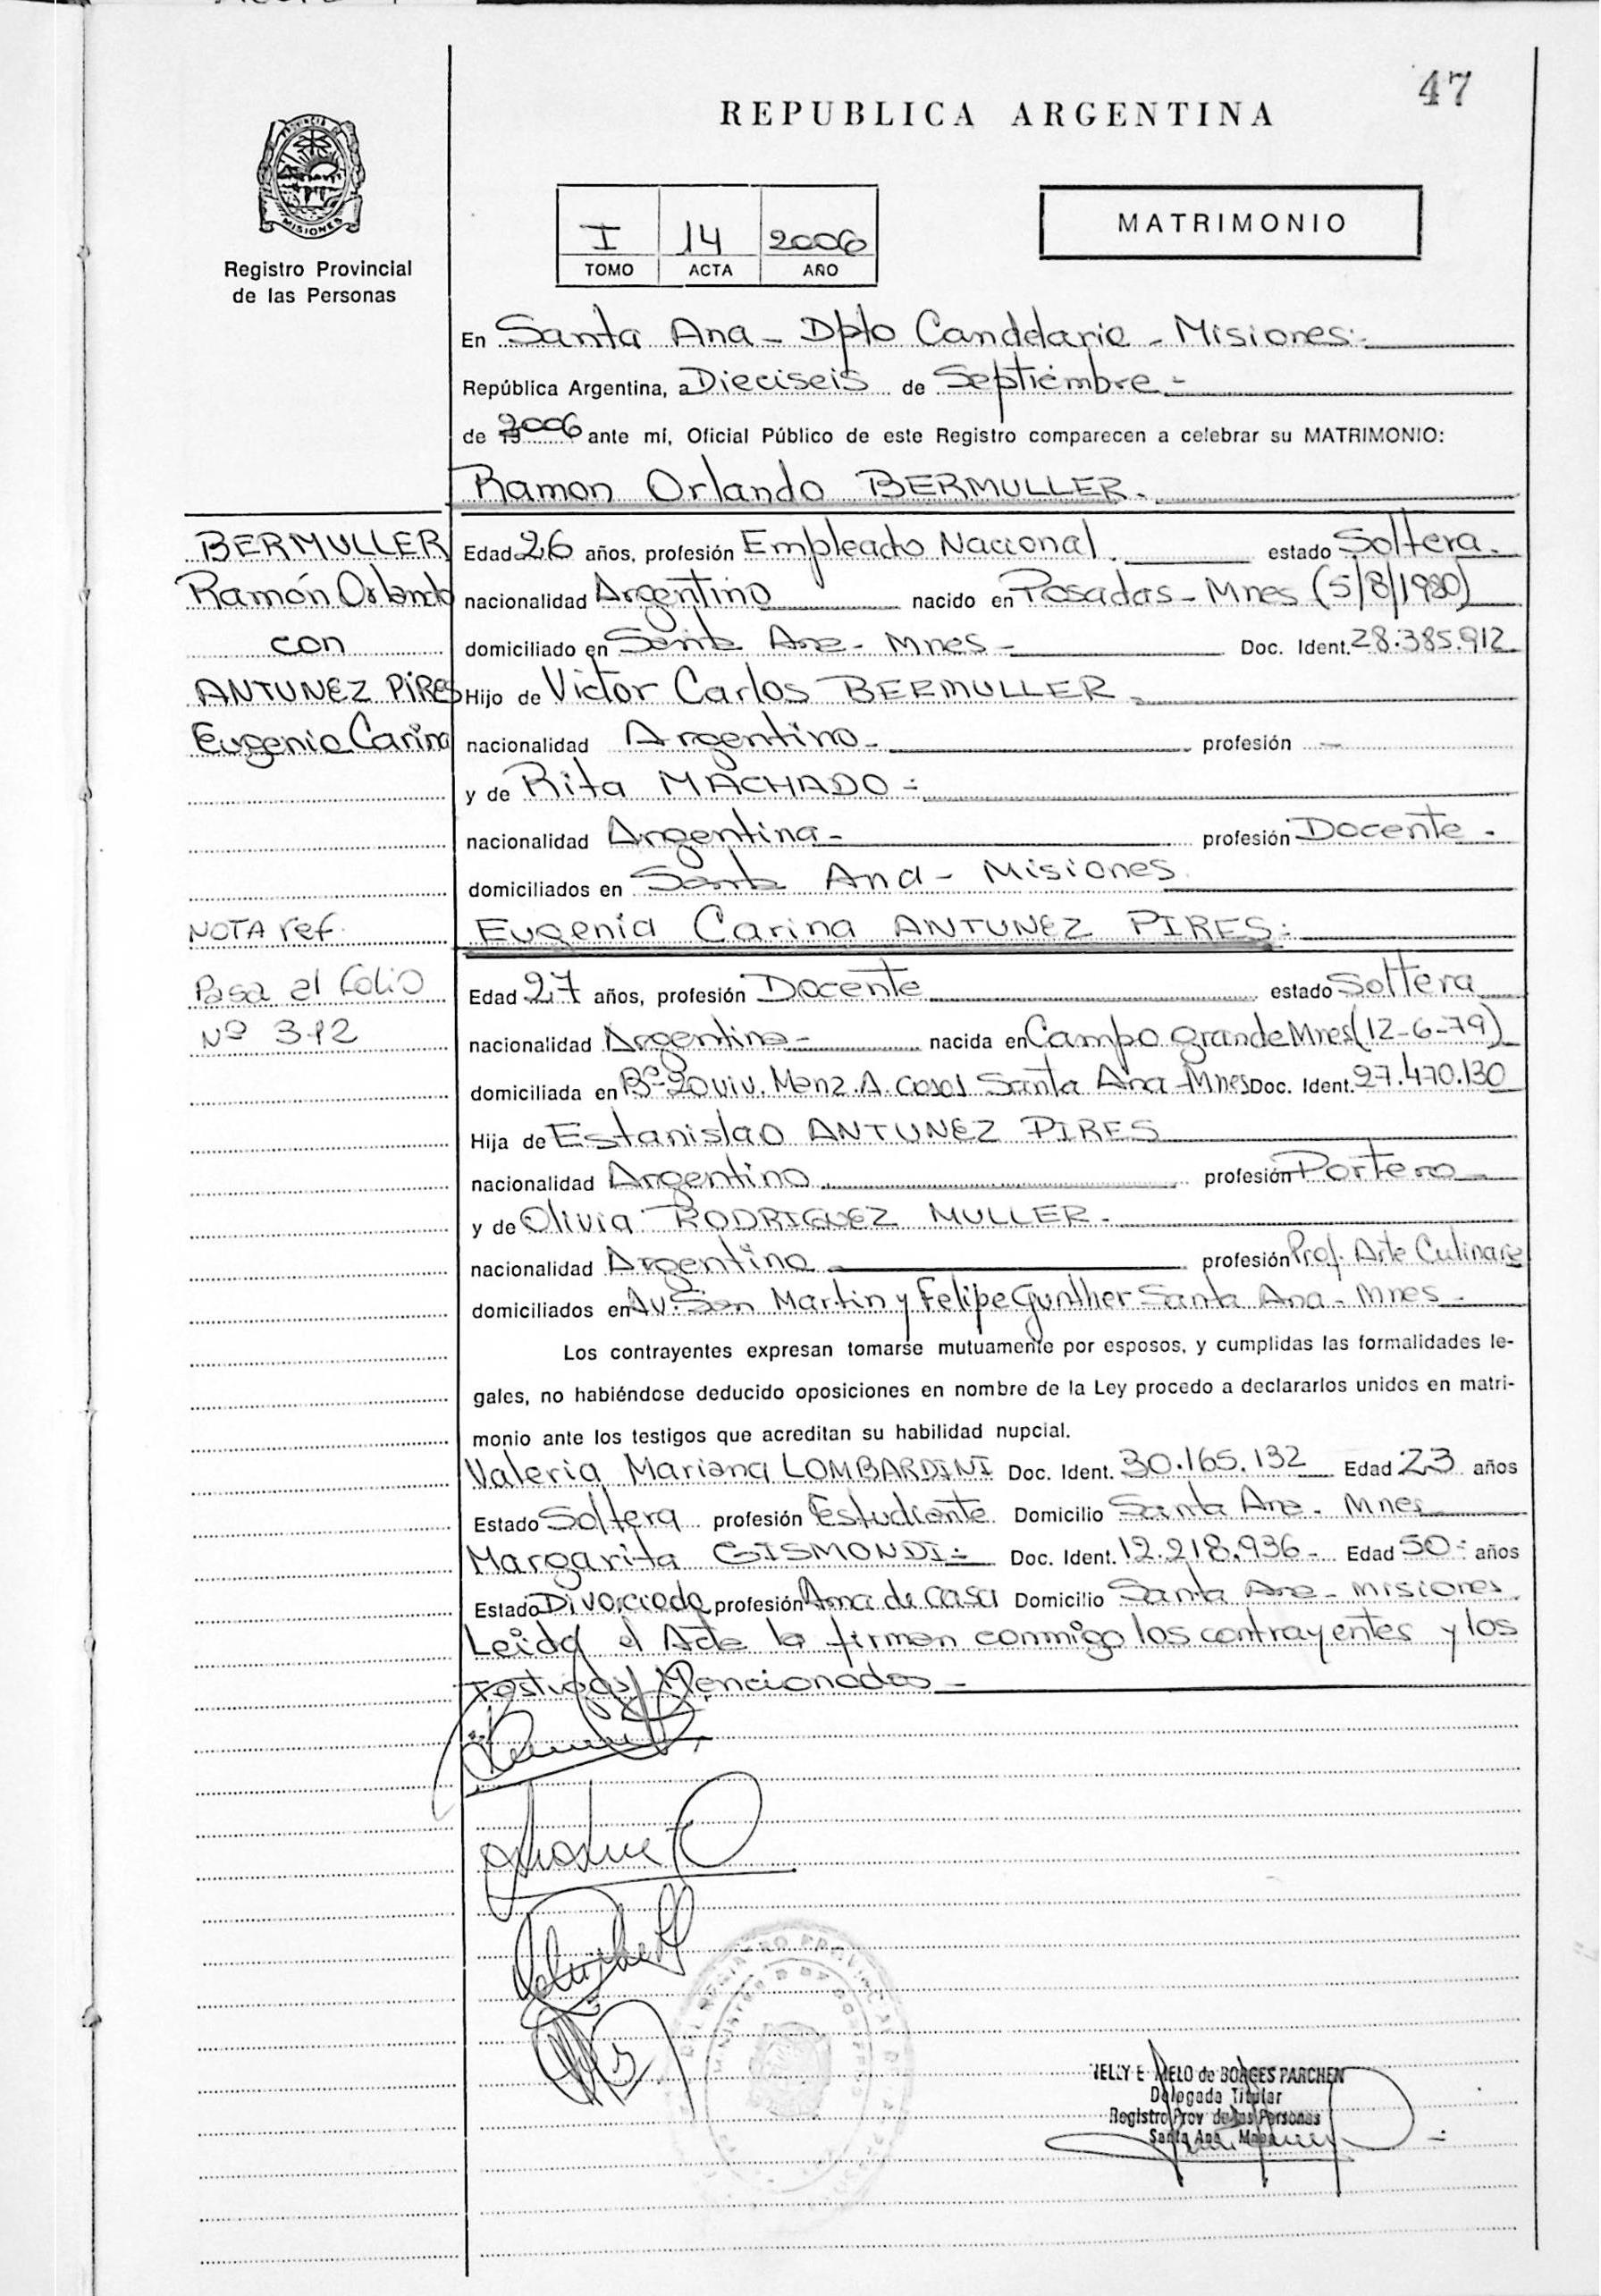 47
REPUBLICA ARGENTINA
PROVINCIA DE
MISIONES
Registro Provincial
de las Personas
I 14 2006
TOMO ACTA AÑO
MATRIMONIO
En Santa Ana - Dpto Candelaria - Misiones:-
República Argentina, a Dieciseis de Septiembre -
de 2006 ante mí, Oficial Público de este Registro comparecen a celebrar su MATRIMONIO:
Ramon Orlando BERMULLER.
BERMULLER
Ramón Orlando
con
ANTUNEZ PIRES
Eugenia Carina
NOTA ref.
Pasa al folio
Nº 312
Edad 26 años, profesión Empleado Nacional. estado Soltera.
nacionalidad Argentino nacido en Posadas - Mnes (5/8/1980)
domiciliado en Santa Ana - Mnes - Doc. Ident. 28.385.912
Hijo de Victor Carlos BERMULLER -
nacionalidad Argentino - profesión -
y de Rita MACHADO :-
nacionalidad Argentina - profesión Docente -
domiciliados en Santa Ana - Misiones
Eugenia Carina ANTUNEZ PIRES:-
Edad 27 años, profesión Docente estado Soltera
nacionalidad Argentina - nacida en Campo Grande Mnes (12-6-79)
domiciliada en Bº 20 viv. Manz. A. casa 1 Santa Ana - Mnes Doc. Ident. 27.470.130
Hija de Estanislao ANTUNEZ PIRES
nacionalidad Argentino profesión Portero -
y de Olivia RODRIGUEZ MULLER -
nacionalidad Argentina profesión Prof. Arte Culinario
domiciliados en Av. San Martin y Felipe Gunther Santa Ana - Mnes -
Los contrayentes expresan tomarse mutuamente por esposos, y cumplidas las formalidades le-
gales, no habiéndose deducido oposiciones en nombre de la Ley procedo a declararlos unidos en matri-
monio ante los testigos que acreditan su habilidad nupcial.
Valeria Mariana LOMBARDINI Doc. Ident. 30.165.132 Edad 23 años
Estado Soltera profesión Estudiante Domicilio Santa Ana - Mnes
Margarita GISMONDI :- Doc. Ident. 12.218.936 - Edad 50 - años
Estado Divorciada profesión Ama de casa Domicilio Santa Ana - Misiones
Leida el Acta la firman conmigo los contrayentes y los
Testigos Mencionados -
NELLY E. MELO de BORGES PARCHEN
Delegada Titular
Registro Prov de las Personas
Santa Ana Mnes